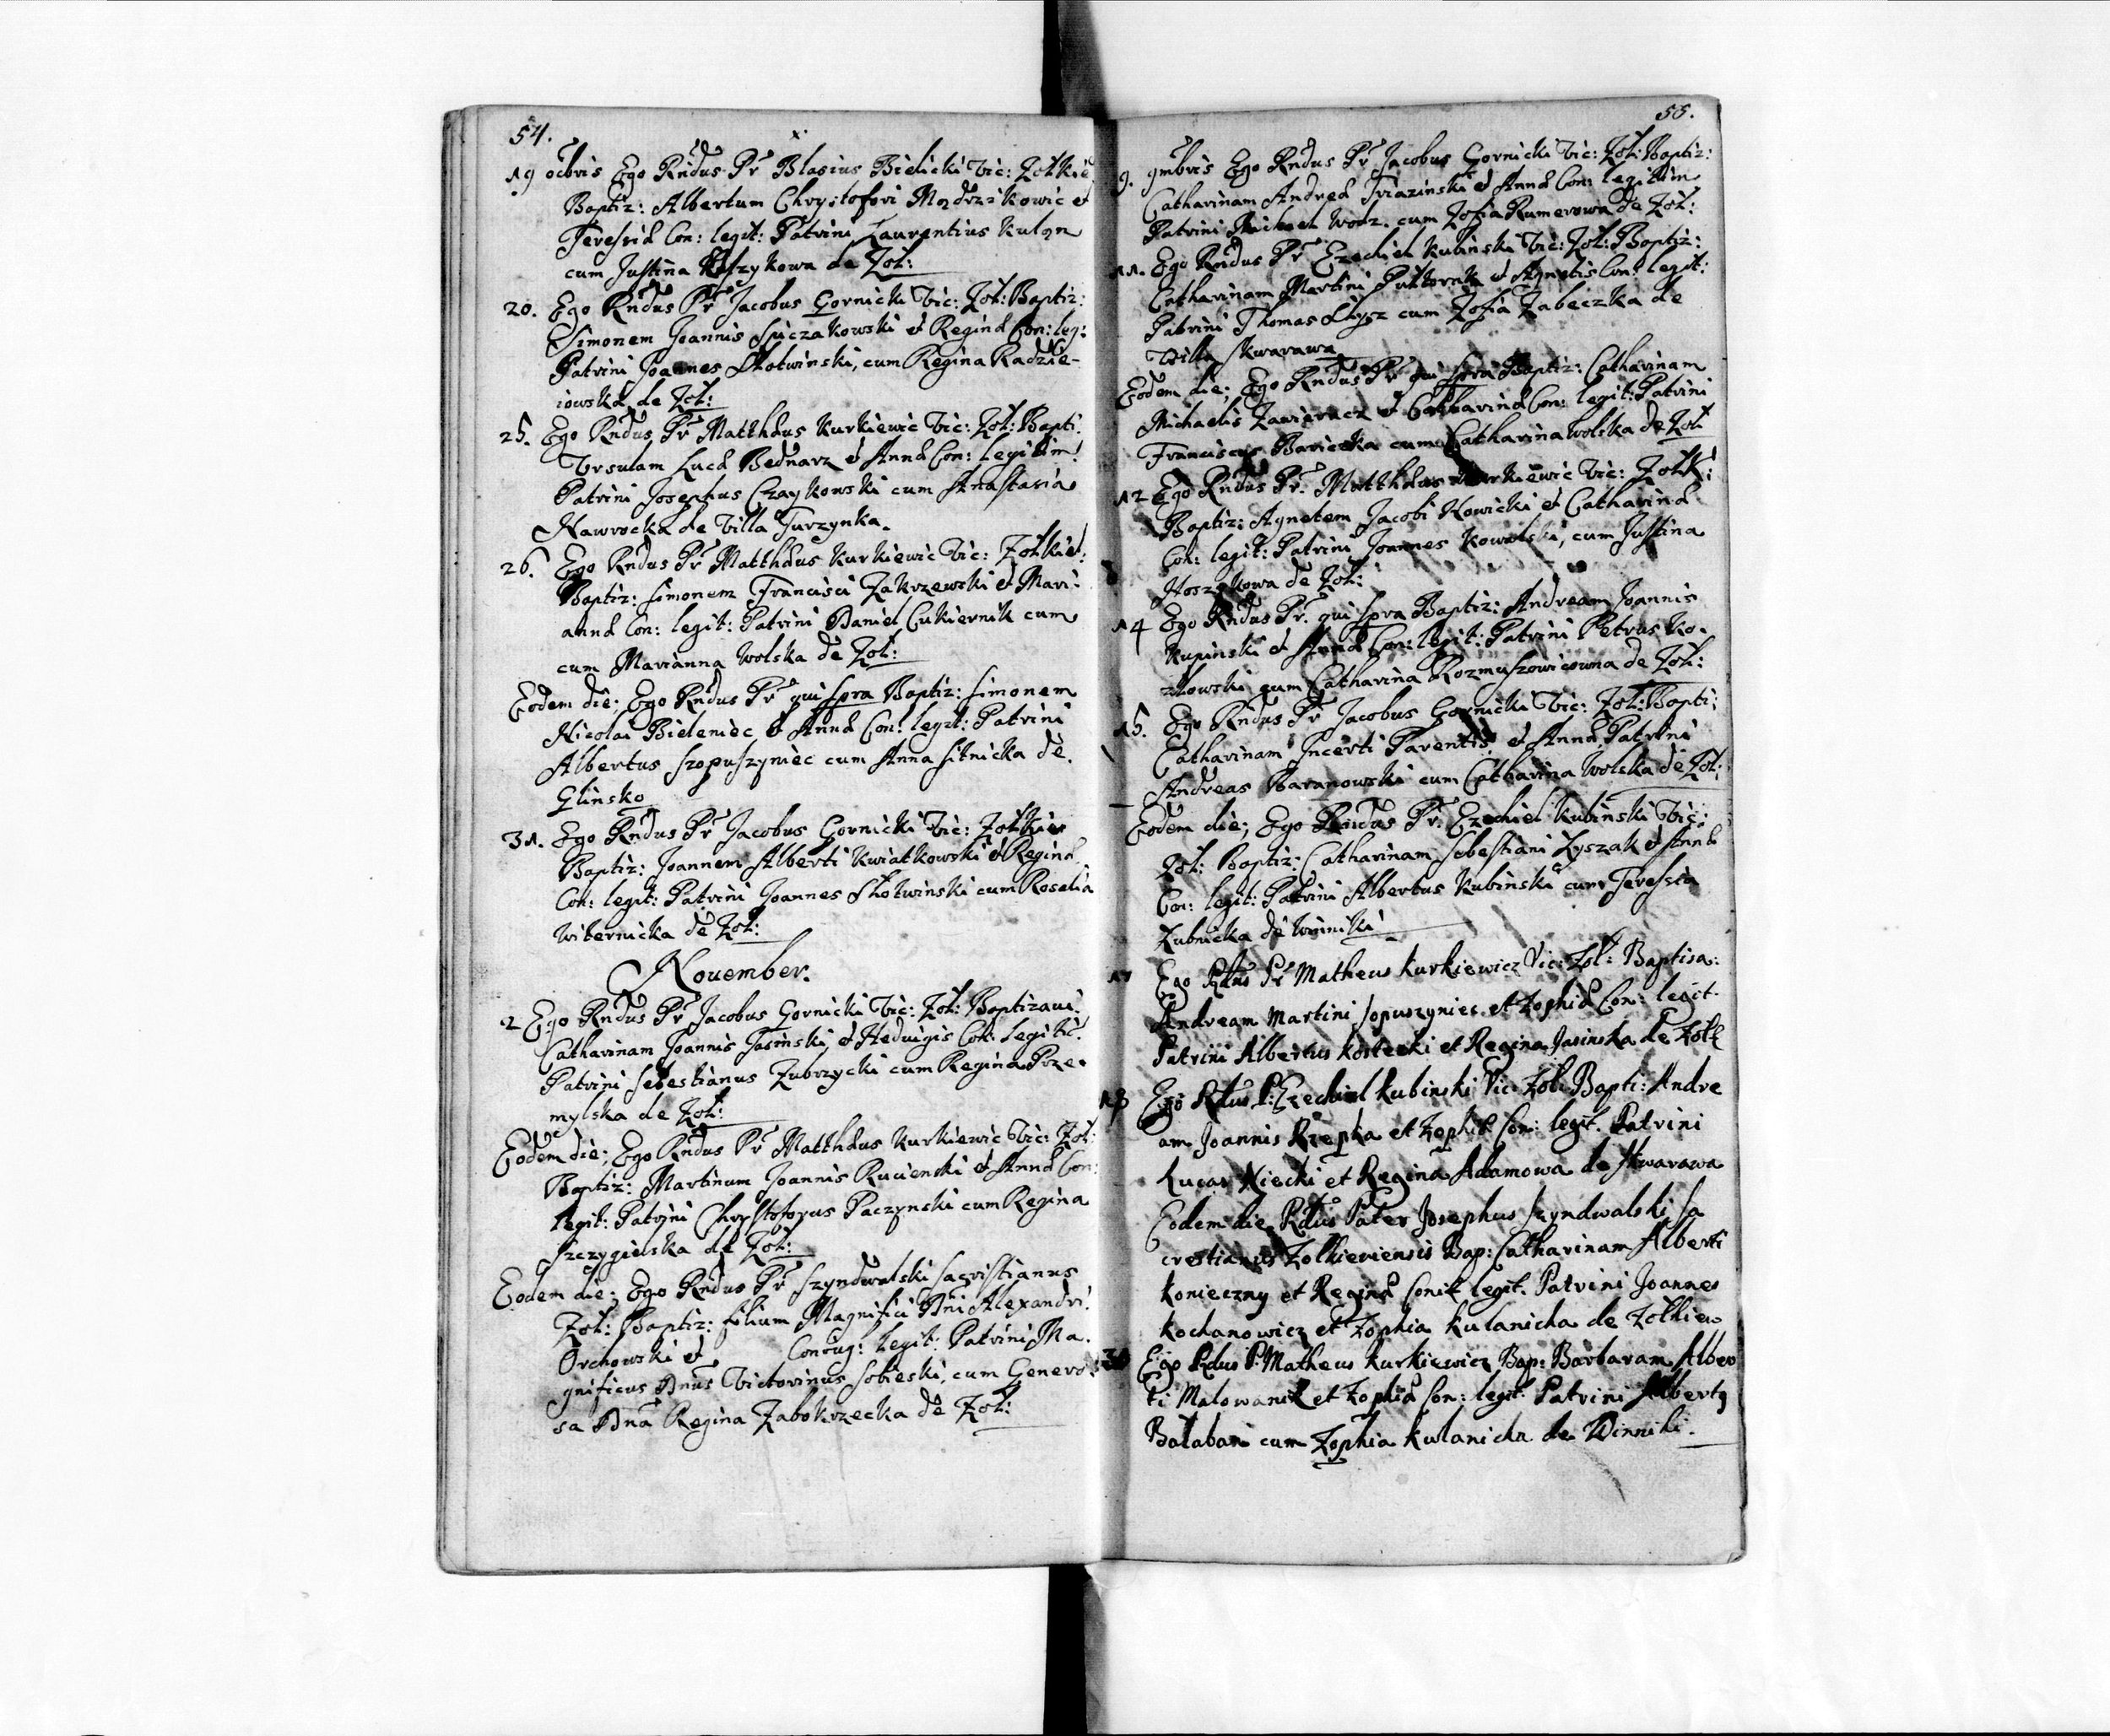 54.
19 octbris Ego Rndus Pr Blasius Bielicki Vic: Zolkie
Baptiz: Albertum Chrystofori Mądrzikowic et
Teressiæ Con: legit: Patrini Laurentius Kulon
cum Justina de Zol:
20. Ego Rndus Pr Jacobus Gornicki Vic: Zol: Baptiz:
Simonem Joannis Spiczakowski et Reginæ Con: leg:
Patrini Joannes Słotwinski, cum Regina Radzie-
iowska de Zol:
25. Ego Rndus Pr Matthæus Kurkiewic Vic: Zol: Bapti:
Vrsulam Lucæ Bednarz et Annæ Con: legitim:
Patrini Josephus Czaykowski cum Anastasia
Nawrocka de Villa Turzynka.
26. Ego Rndus Pr Matthæus Kurkiewic Vic: Zolkie:
Baptiz: Simonem Francisci Zakrzewski et Mari-
annæ Con: legit: Patrini Daniel Cukiernik cum
cum Marianna Wolska de Zol:
Eodem die; Ego Rndus Pr qui Spra Baptiz: Simonem
Nicolai Bieleniec et Annæ Con: legit: Patrini
Albertus Szopuszyniec cum Anna Sitnicka de
Glinsko
31. Ego Rndus Pr Jacobus Gornicki Vic: Zolkiew
Baptiz: Joannem Alberti Kwiatkowski et Reginæ
Con: legit: Patrini Joannes Słotwinski cum Rosalia
Witernicka de Zol:
Nouember.
2 Ego Rndus Pr Jacobus Gornicki Vic: Zol: Baptizaui
Catharinam Joannis Jasinski, et Heduigis Con: legitic:
Patrini Sebestianus Zubrzycki cum Regina Prze-
mylska de Zol:
Eodem die; Ego Rndus Pr Matthæus Kurkiewic Vic: Zol:
Baptiz: Martinum Joannis Rucienski et Annæ Con:
legit: Patrini Chrystoforus Paczynski cum Regina
Szczygielska de Zol:
Eodem die; Ego Rndus Pr Szyndwalski Sacristianus
Zol: Baptiz: filium Magnifici Dni Alexandri
Orchowski et Coniug: legit: Patrini Ma-
gnificus Dnus Victorinus Sobieski, cum Genero-
sa Dna Regina Zabokrzecka de Zol:
55.
9. 9mbris Ego Rndus Pr Jacobus Gornicki Vic: Zol: Baptiz:
Catharinam Andreæ Triazinski et Annæ Con: legittim
Patrini Michael Wodz. cum Zofia Rumerowa de Zol:
11. Ego Rndus Pr Ezechiel Kubinski Vic: Zol: Baptiz:
Catharinam Martini et Agnetis Con: legit:
Patrini Thomas Łysz cum Zofia Zabeczka de
Villa Skwarawa
Eodem die; Ego Rndus Pr qui Spra Baptiz: Catharinam
Michaelis Zawieracz et Catharinæ Con: legit: Patrini
Franciscus cum Catharina Wolska de Zol
12 Ego Rndus Pr. Matthæus Kurkiewic Vic: Zolk:
Baptiz: Agnetem Jacobi Nowicki et Catharinæ
Con: legit: Patrini Joannes Kowalski, cum Justina
de Zol:
14 Ego Rndus Pr. qui Spra Baptiz: Andream Joannis
Kupinski et Annæ Con: legit: Patrini Petrus Ko-
złowski cum Catharina Rozmuszowicowna de Zol:
15. Ego Rndus Pr Jacobus Gornicki Vic: Zol: Bapti:
Catharinam Incerti Parentis, et Annæ, Patrini
Andreas Baranowski cum Catharina Wolska de Zol:
Eodem die; Ego Rndus Pr. Ezechiel Kubinski Vic:
Zol: Baptiz: Catharinam Sebestiani Łyszak et Annæ
Con: legit: Patrini Albertus Kubinski cum Teressia
Zubnicka de Winniki
17 Ego Rdus Pr Matheus Kurkiewicz Vic: Zol: Baptisa:
Andream Martini Sopuszyniec et Zophiæ Con: legit.
Patrini Albertus Kostecki et Regina Jasinska de Zolk
18 Ego Rdus P: Ezechiel Kubinski Vic: Zol: Bapti: Andre
am Joannis Rzepka et Zophiæ Con: legit. Patrini
Lucas Niecki et Regina Adamowa de Skwarawa
Eodem die Rdus Pater Josephus Szyndwalski Sa
crestianus Zolkieviensis Bap: Catharinam Alberti
Konieczny et Reginæ Coniu: legit. Patrini Joannes
Kochanowicz et Zophia Kulanicha de Zolkiew
30 Ego Rdus P: Matheus Kurkiewicz Bap: Barbaram Alber
ti Malowanik et Zophiæ Con: legit: Patrini Albertq
Bałaban cum Zophia Kulanicha de Winniki.